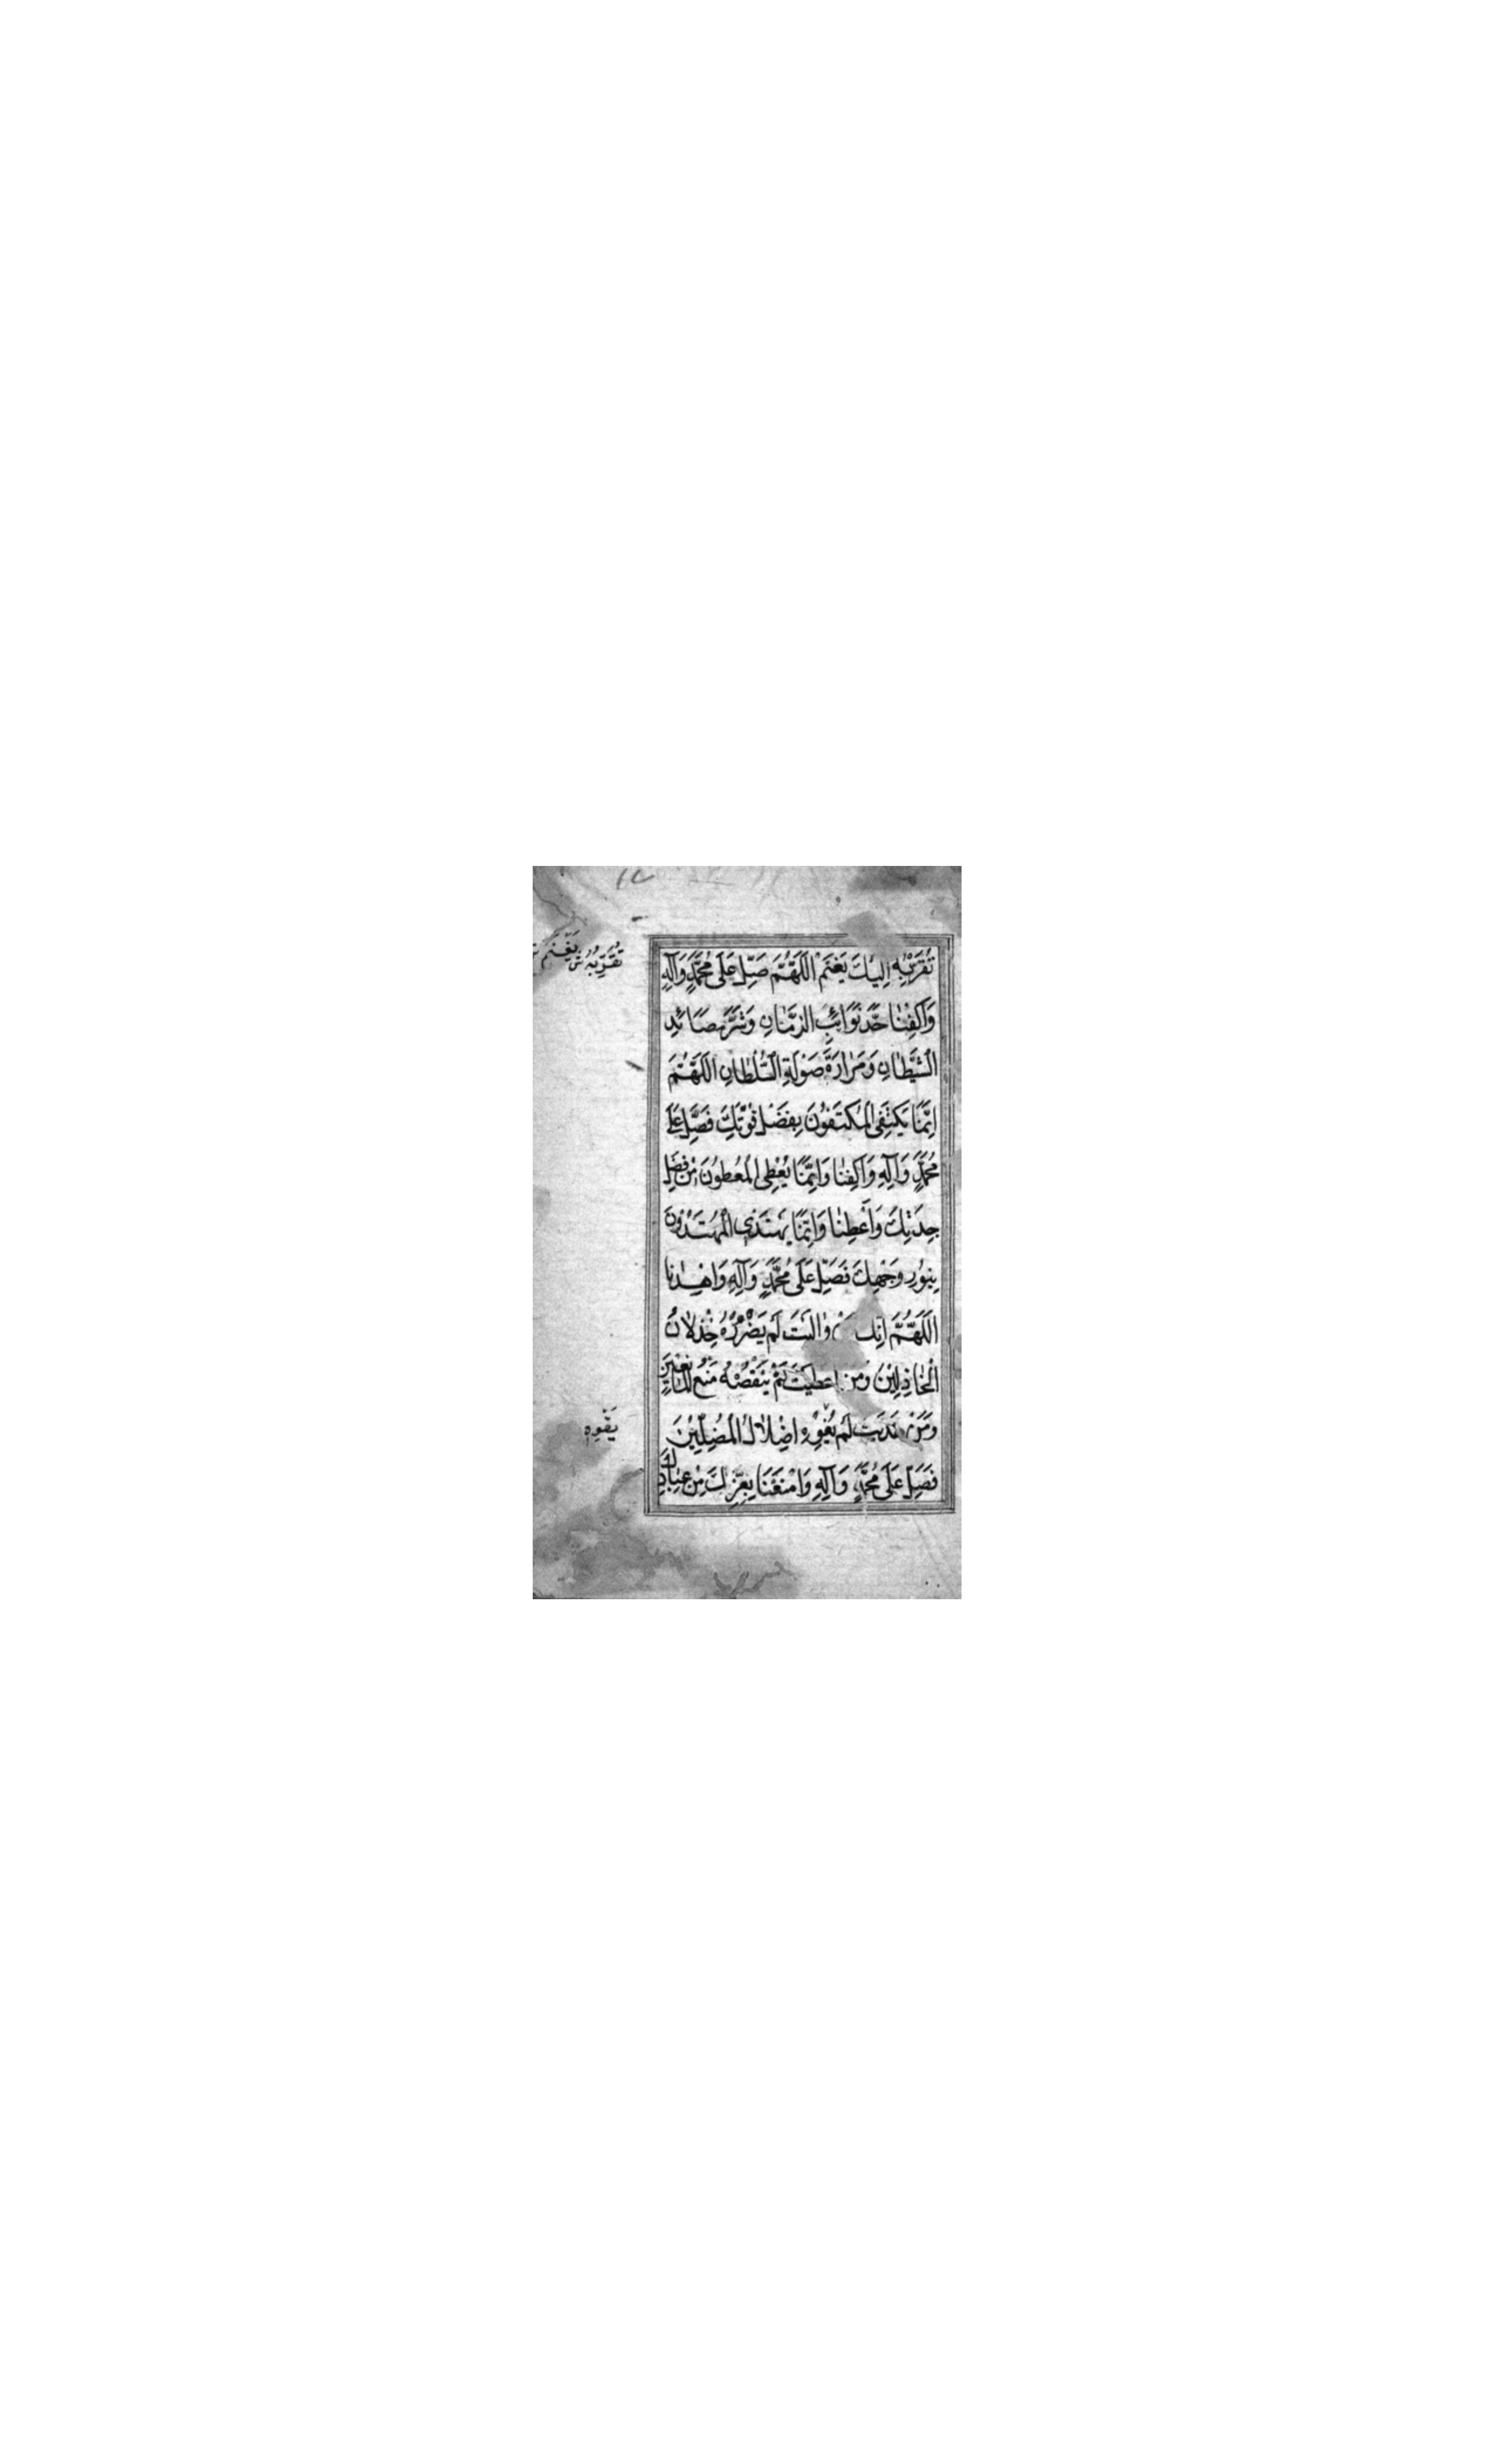 تُقَرِّبْهُ اِلَيْكَ يَغْنَمْ اَللّٰهُمَّ صَلِّ عَلٰى مُحَمَّدٍ وَاٰلِهِ
وَاكْفِنَا حَدَّ نَوَائِبِ الزَّمَانِ وَشَرَّ مَصَائِدِ
الشَّيْطَانِ وَمَرَارَةَ صَوْلَةِ السُّلْطَانِ اَللّٰهُمَّ
اِنَّمَا يَكْتَفِى الْمُكْتَفُوْنَ بِفَضْلِ قُوَّتِكَ فَصَلِّ عَلٰى
مُحَمَّدٍ وَاٰلِهِ وَاكْفِنَا وَاِنَّمَا يُعْطِى الْمُعْطُوْنَ مِنْ فَضْلِ
جِدَتِكَ وَاَعْطِنَا وَاِنَّمَا يَهْتَدِى الْمُهْتَدُوْنَ
بِنُوْرِ وَجْهِكَ فَصَلِّ عَلٰى مُحَمَّدٍ وَاٰلِهِ وَاهْدِنَا
اَللّٰهُمَّ اِنَّكَ وَالَيْتَ لَمْ يَضْرُرْهُ خِذْلَانُ
الْخَاذِلِيْنَ وَمَنْ اَعْطَيْتَ لَمْ يَنْقُصْهُ مَنْعُ الْمَانِعِيْنَ
وَمَنْ هَدَيْتَ لَمْ يُغْوِهِ اِضْلَالُ الْمُضِلِّيْنَ
فَصَلِّ عَلٰى مُحَمَّدٍ وَاٰلِهِ وَامْنَعْنَا بِعِزِّكَ مِنْ عِبَادِكَ
تُقَرِّبُهُ ش يَغْنَم
يَغْوِهِ